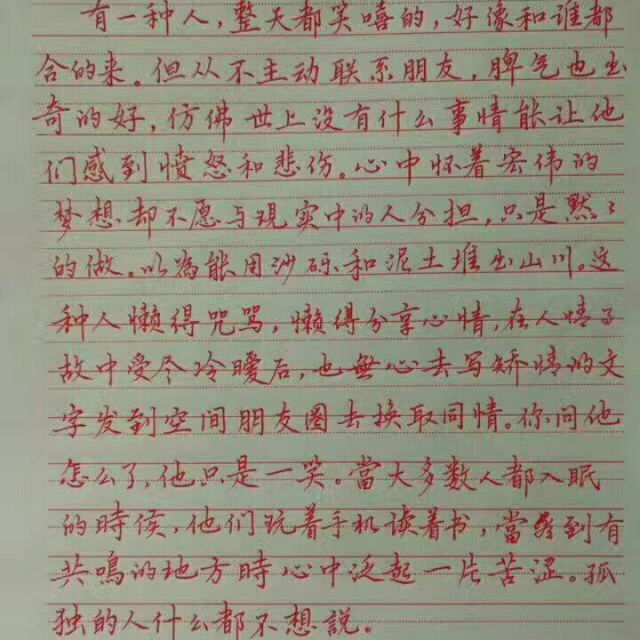 有一种人，整天都笑嘻的，好像和谁都
合的来。但从不主动联系朋友，脾气也出
奇的好，仿佛世上没有什么事情能让他
们感到愤怒和悲伤。心中怀着宏伟的
梦想却不愿与现实中的人分担，只是默々
的做。以為能用沙砾和泥土堆出山川。这
种人懒得咒骂，懒得分享心情，在人情世
故中受尽冷暖后，也無心去写矫情的文
字发到空间朋友圈去换取同情。你问他
怎么了，他只是一笑。當大多数人都入眠
的時候，他们玩着手机读着书，當看到有
共鳴的地方時心中泛起一片苦涩。孤
独的人什么都不想説。